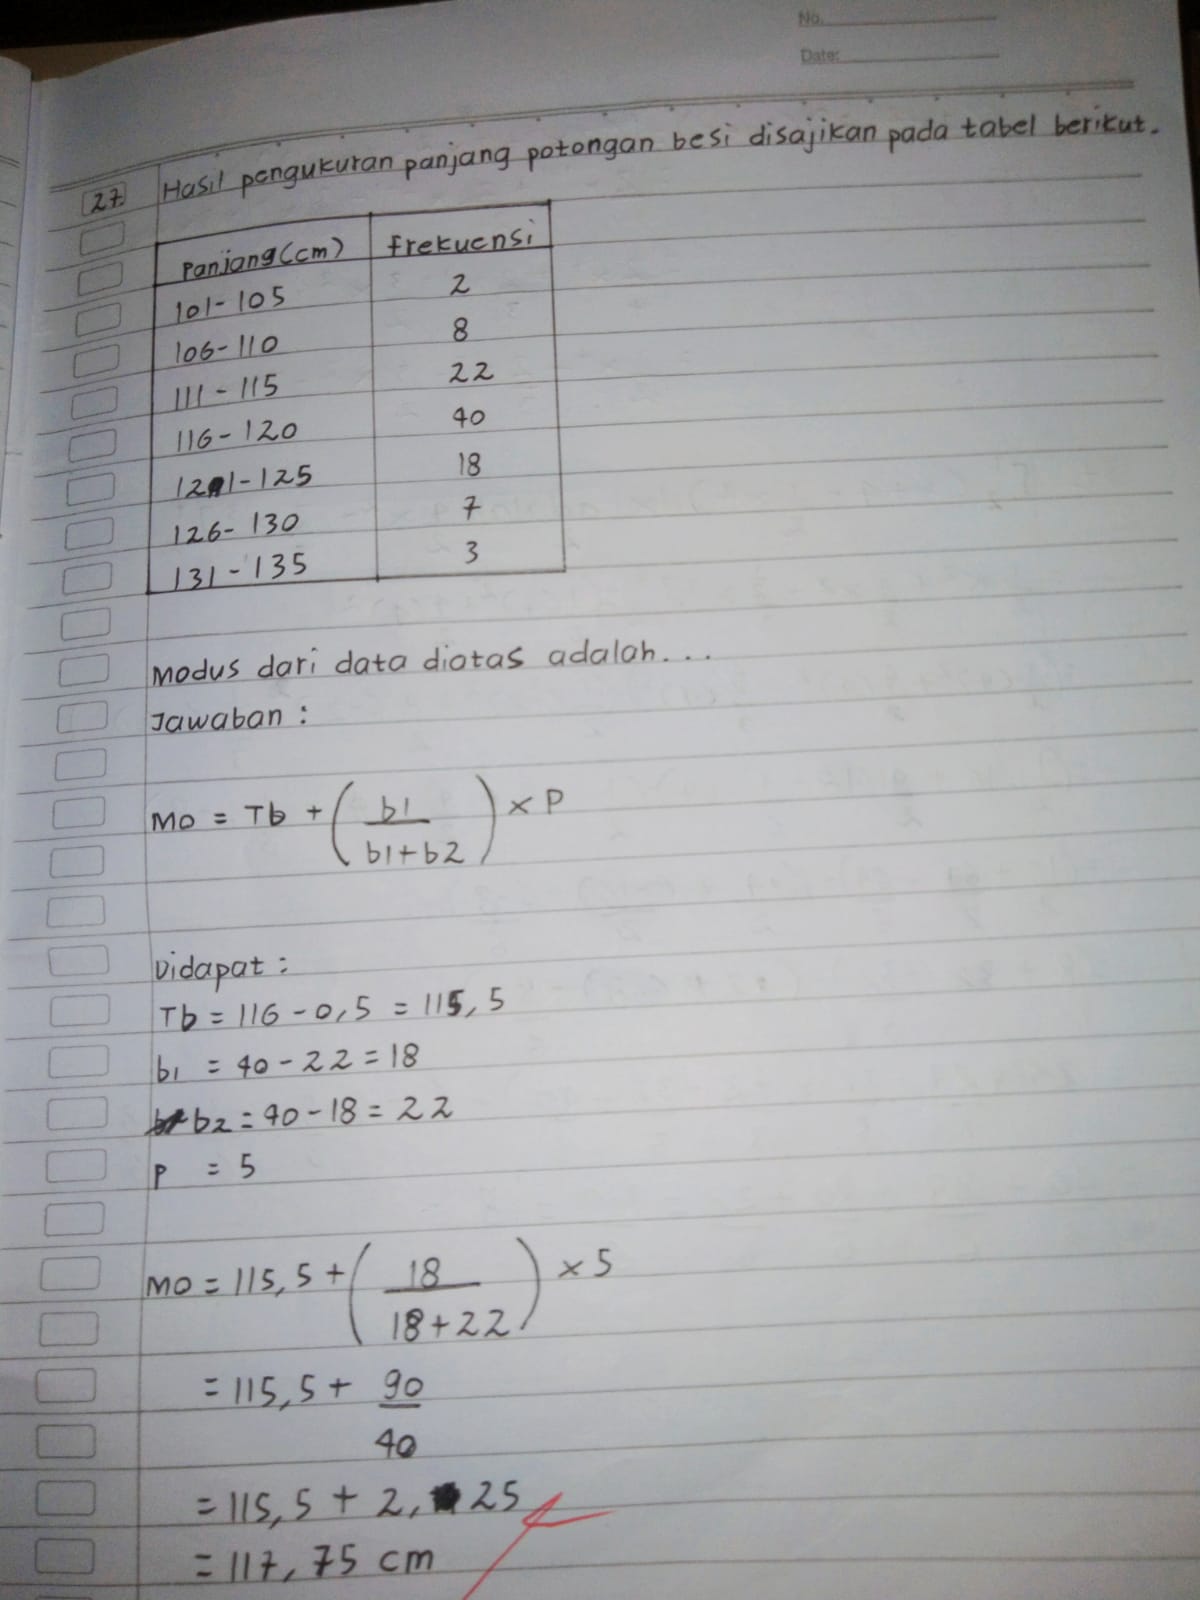 No.
Date:
27. Hasil pengukuran panjang potongan besi disajikan pada tabel berikut.
Panjang (cm) frekuensi
101-105 2
106-110 8
111-115 22
116-120 40
121-125 18
126-130 7
131-135 3
Modus dari data diatas adalah...
Jawaban :
Mo = Tb + (b1 / b1+b2) × P
Didapat :
Tb = 116 - 0,5 = 115,5
b1 = 40 - 22 = 18
b2 = 40 - 18 = 22
P = 5
Mo = 115,5 + (18 / 18+22) × 5
= 115,5 + 90/40
= 115,5 + 2,25
= 117,75 cm